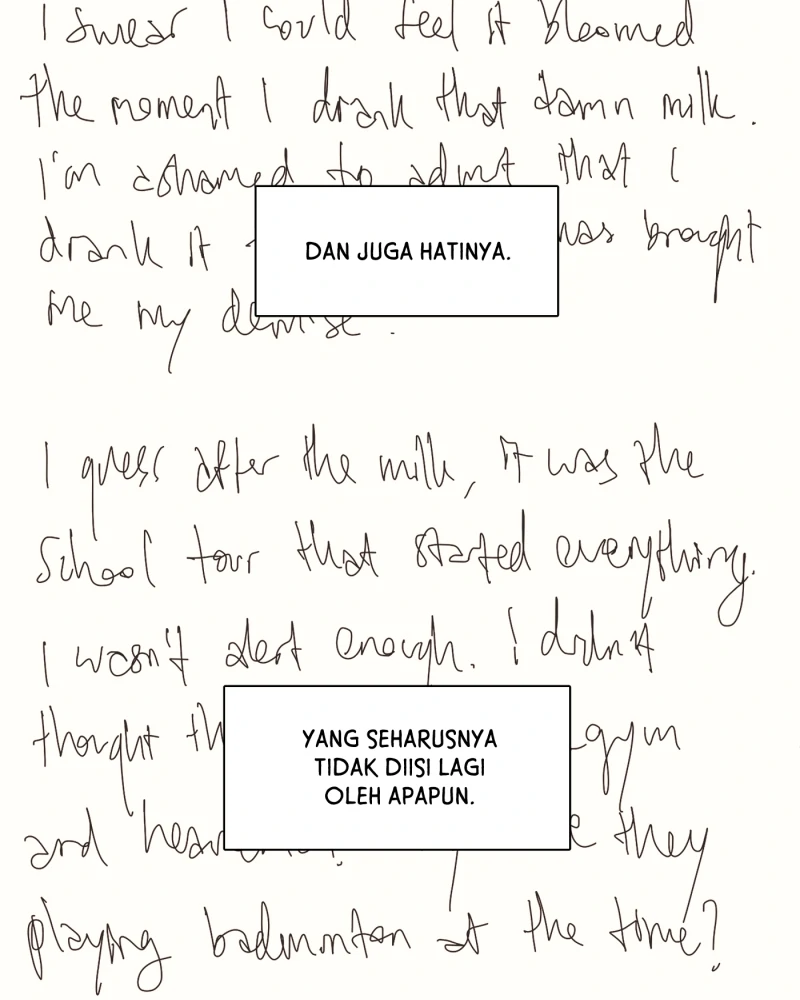 I swear I could feel it bloomed
the moment I drank that damn milk.
I'm ashamed to admit that I
drank it
DAN JUGA HATINYA.
has brought
me my demise.
I guess after the milk, it was the
school tour that started everything.
I wasn't alert enough. I didn't
thought
YANG SEHARUSNYA
TIDAK DIISI LAGI
OLEH APAPUN.
gym
and
they
playing badminton at the time?